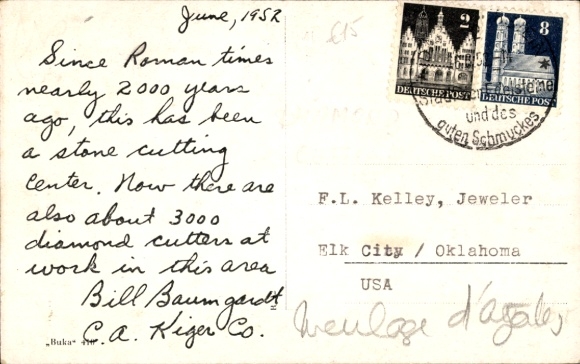 June, 1952
Since Roman times
nearly 2000 years
ago, this has been
a stone cutting
center. Now there are
also about 3000
diamond cutters at
work in this area
Bill Baumgardt
C.A. Kiger Co.
„Buka"
£15
2
DEUTSCHE POST
8
DEUTSCHE POST
und des
guten Schmuckes
F.L. Kelley, Jeweler
Elk City / Oklahoma
USA
meulage d'agates